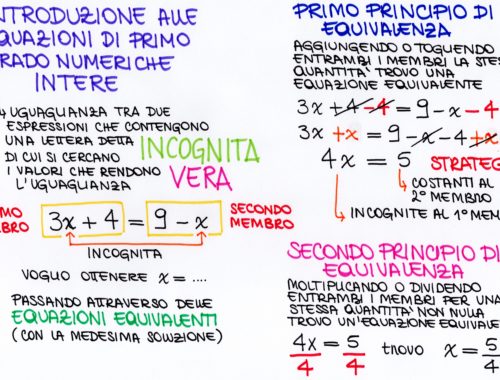 NTRODUZIONE ALLE
QUAZIONI DI PRIMO
RADO NUMERICHE
INTERE
UGUAGLIANZA TRA DUE
ESPRESSIONI CHE CONTENGONO
UNA LETTERA DETTA INCOGNITA
DI CUI SI CERCANO
I VALORI CHE RENDONO VERA
L'UGUAGLIANZA
MO
BRO
3x + 4 = 9 - x
SECONDO
MEMBRO
INCOGNITA
VOGLIO OTTENERE x = ....
PASSANDO ATTRAVERSO DELLE
EQUAZIONI EQUIVALENTI
(CON LA MEDESIMA SOLUZIONE)
PRIMO PRINCIPIO DI
EQUIVALENZA
AGGIUNGENDO O TOGLIENDO
ENTRAMBI I MEMBRI LA STES
QUANTITA' TROVO UNA
EQUAZIONE EQUIVALENTE
3x +4 -4 = 9 - x - 4
3x + x = 9 - x - 4 + x
4x = 5 STRATEG
COSTANTI AL
2° MEMBRO
INCOGNITE AL 1° MEM
SECONDO PRINCIPIO DI
EQUIVALENZA
MOLTIPLICANDO O DIVIDENDO
ENTRAMBI I MEMBRI PER UNA
STESSA QUANTITA' NON NULLA
TROVO UN'EQUAZIONE EQUIVALE
4x/4 = 5/4 trovo x = 5/4